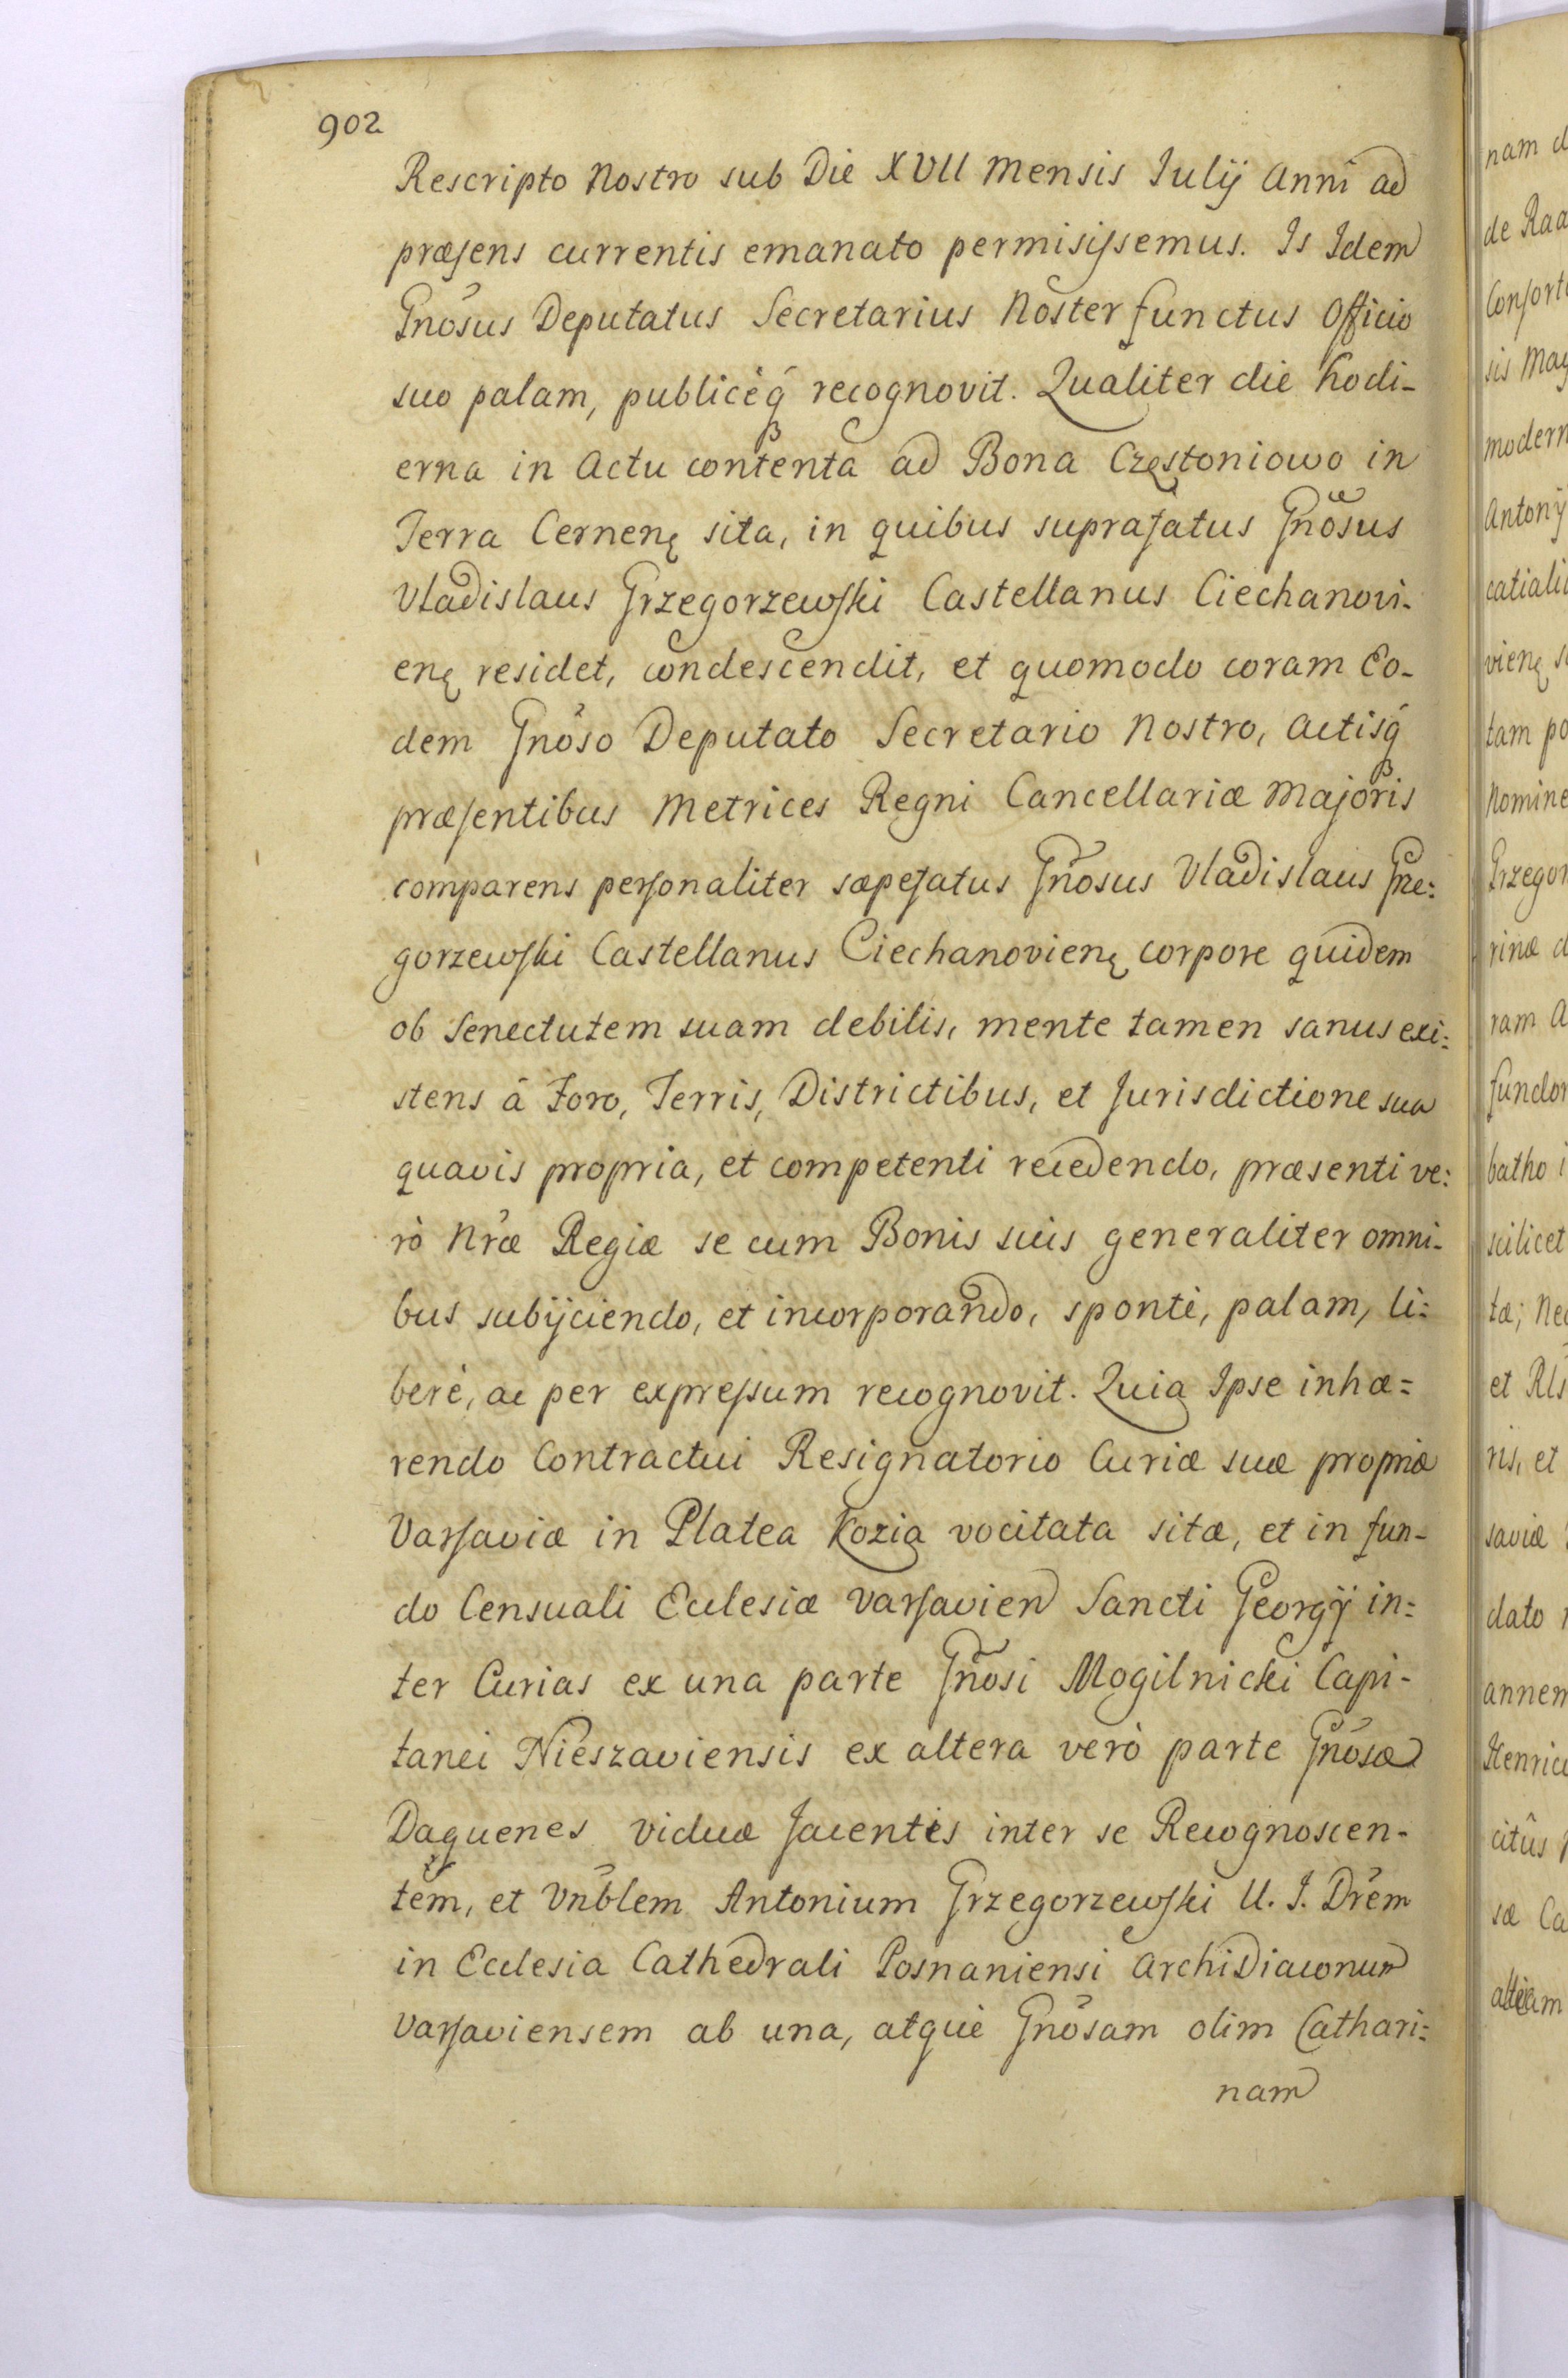 902
Rescripto Nostro sub Die XVII Mensis Iulij Anni ad
præsens currentis emanato permisissemus. Is Idem
Gnõsus Deputatus Secretarius Noster functus Officio
suo palam, publicèq́ recognovit. Qualiter die hodi-
erna in Actu contenta ad Bona Częstoniowo in
Terra Cernenę sita, in quibus suprafatus Gnõsus
Vladislaus Grzegorzewski Castellanus Ciechanovi-
enę residet, condescendit, et quomodo coram Eo-
dem Gnõso Deputato Secretario Nostro, Actisq́
præsentibus Metrices Regni Cancellariæ Majoris
comparens personaliter sæpefatus Gnõsus Vladislaus Grze:
gorzewski Castellanus Ciechanovienę corpore quidem
ob Senectutem suam debilis, mente tamen sanus exi:
stens â Foro, Terris, Districtibus, et Jurisdictione sua
quavis propria, et competenti recedendo, præsenti ve:
rò Nræ Regiæ se cum Bonis suis generaliter omni-
bus subijciendo, et incorporando, spontè, palam, li:
berè, ac per expressum recognovit. Quia Ipse inhæ=
rendo Contractui Resignatorio Curiæ suæ propriæ
Varsaviæ in Platea Kozia vocitata sitæ, et in fun-
do Censuali Ecclesiæ Varsavien Sancti Georgij in=
ter Curias ex una parte Gnõsi Mogilnicki Capi-
tanei Nieszaviensis ex altera verò parte Gnõsæ
Daguenes viduæ Jacentis inter se Recognoscen-
tem, et Vnblem Antonium Grzegorzewski U. J. Drem
in Ecclesia Cathedrali Posnaniensi ArchiDiaconum
Varsaviensem ab una, atquè Gnõsam olim Cathari:
nam
nam d
de Raa
Consort
sis Mag
modern
Antonij
catiali
vienę s
tam po
Nomine
Grzegor
rinæ d
ram A
fundor
batho i
scilicet
tæ; Nec
et Rls
ris, et
saviæ
dato
annem
Henric
citûs
sæ Ca